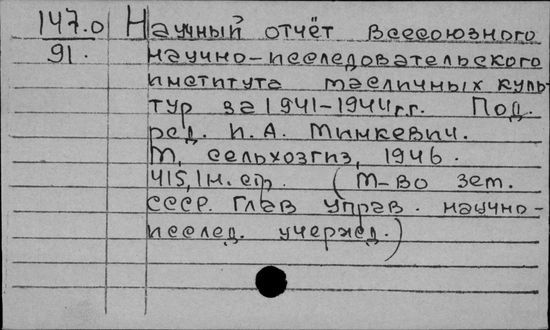 147.0 Научный отчёт Всесоюзного
91. научно-исследовательского
института масличных куль-
тур за 1941-1944 г.г. Под.
ред. И. А. Минкевич.
М, сельхозгиз, 1946.
415, 1 н. стр. (М-во зем.
СССР. Глав управ. научно-
исслед. учережд.)